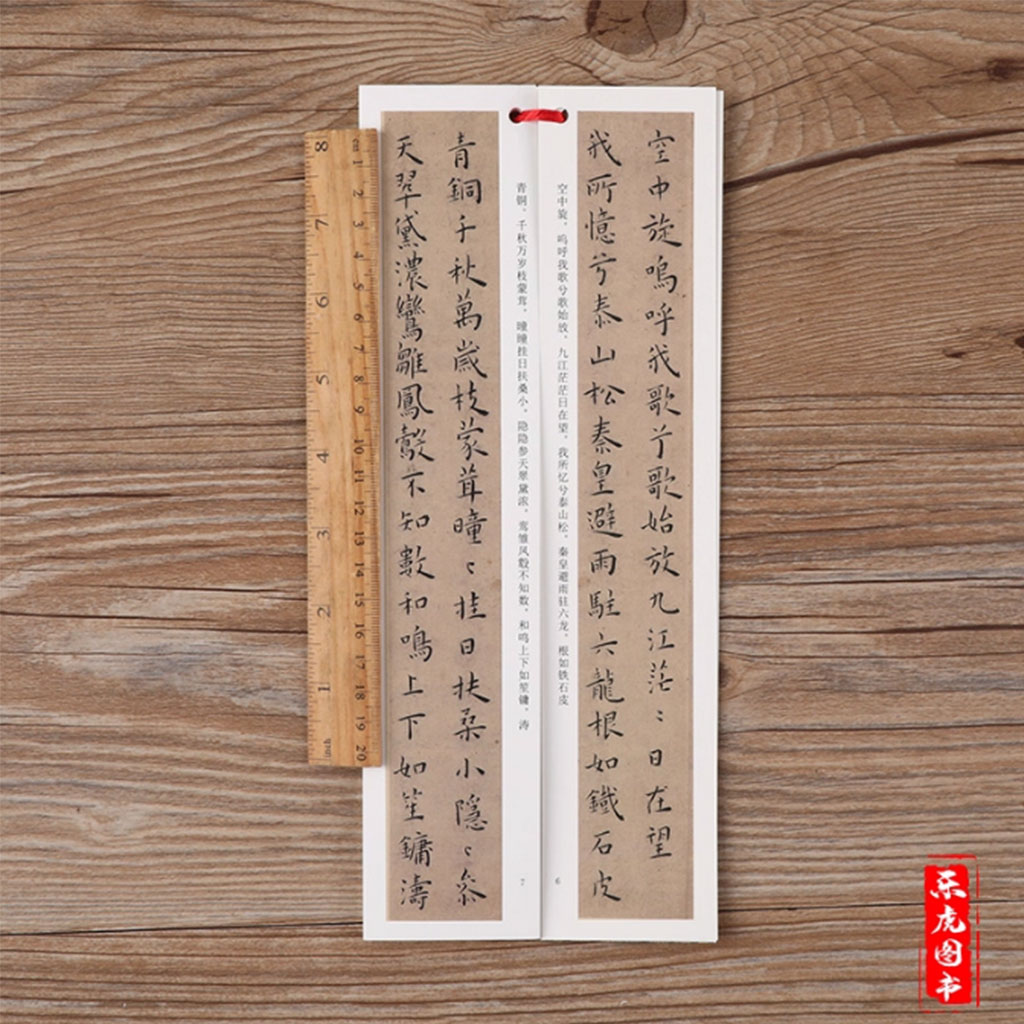 空中旋嗚呼我歌兮歌始放九江茫〻日在望
我所憶兮泰山松秦皇避雨駐六龍根如鐵石皮
空中旋，呜呼我歌兮歌始放，九江茫茫日在望，我所忆兮泰山松，秦皇避雨驻六龙，根如铁石皮
6
青铜，千秋万岁枝蒙茸，曈曈挂日扶桑小，隐隐参天翠黛浓，鸾雏凤鷇不知数，和鸣上下如笙镛，涛
7
青銅千秋萬歲枝蒙茸曈〻挂日扶桑小隱〻叅
天翠黛濃鸞雛鳳鷇不知數和鳴上下如笙鏞濤
cm 1 2 3 4 5 6 7 8 9 10 11 12 13 14 15 16 17 18 19 20
8 7 6 5 4 3 2 1
乐虎图书